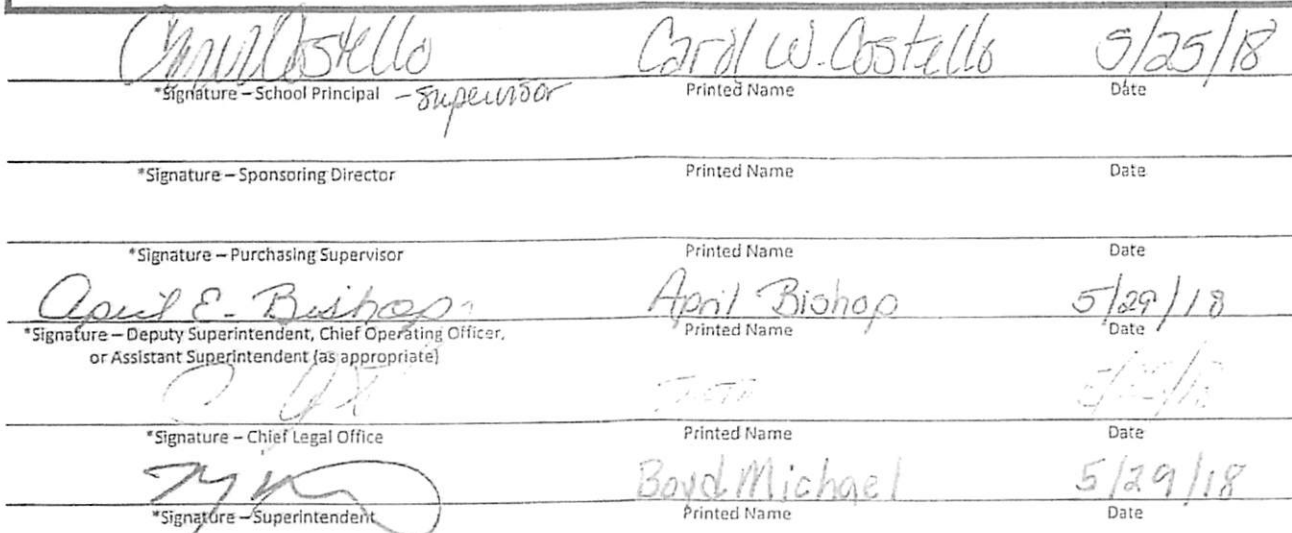 Carol Costello Carol W. Costello 5/25/18
*Signature – School Principal - Supervisor Printed Name Date
*Signature – Sponsoring Director Printed Name Date
*Signature – Purchasing Supervisor Printed Name Date
April E. Bishop April Bishop 5/29/18
*Signature – Deputy Superintendent, Chief Operating Officer, Printed Name Date
or Assistant Superintendent (as appropriate)
*Signature – Chief Legal Office Printed Name Date
Boyd Michael 5/29/18
*Signature – Superintendent Printed Name Date